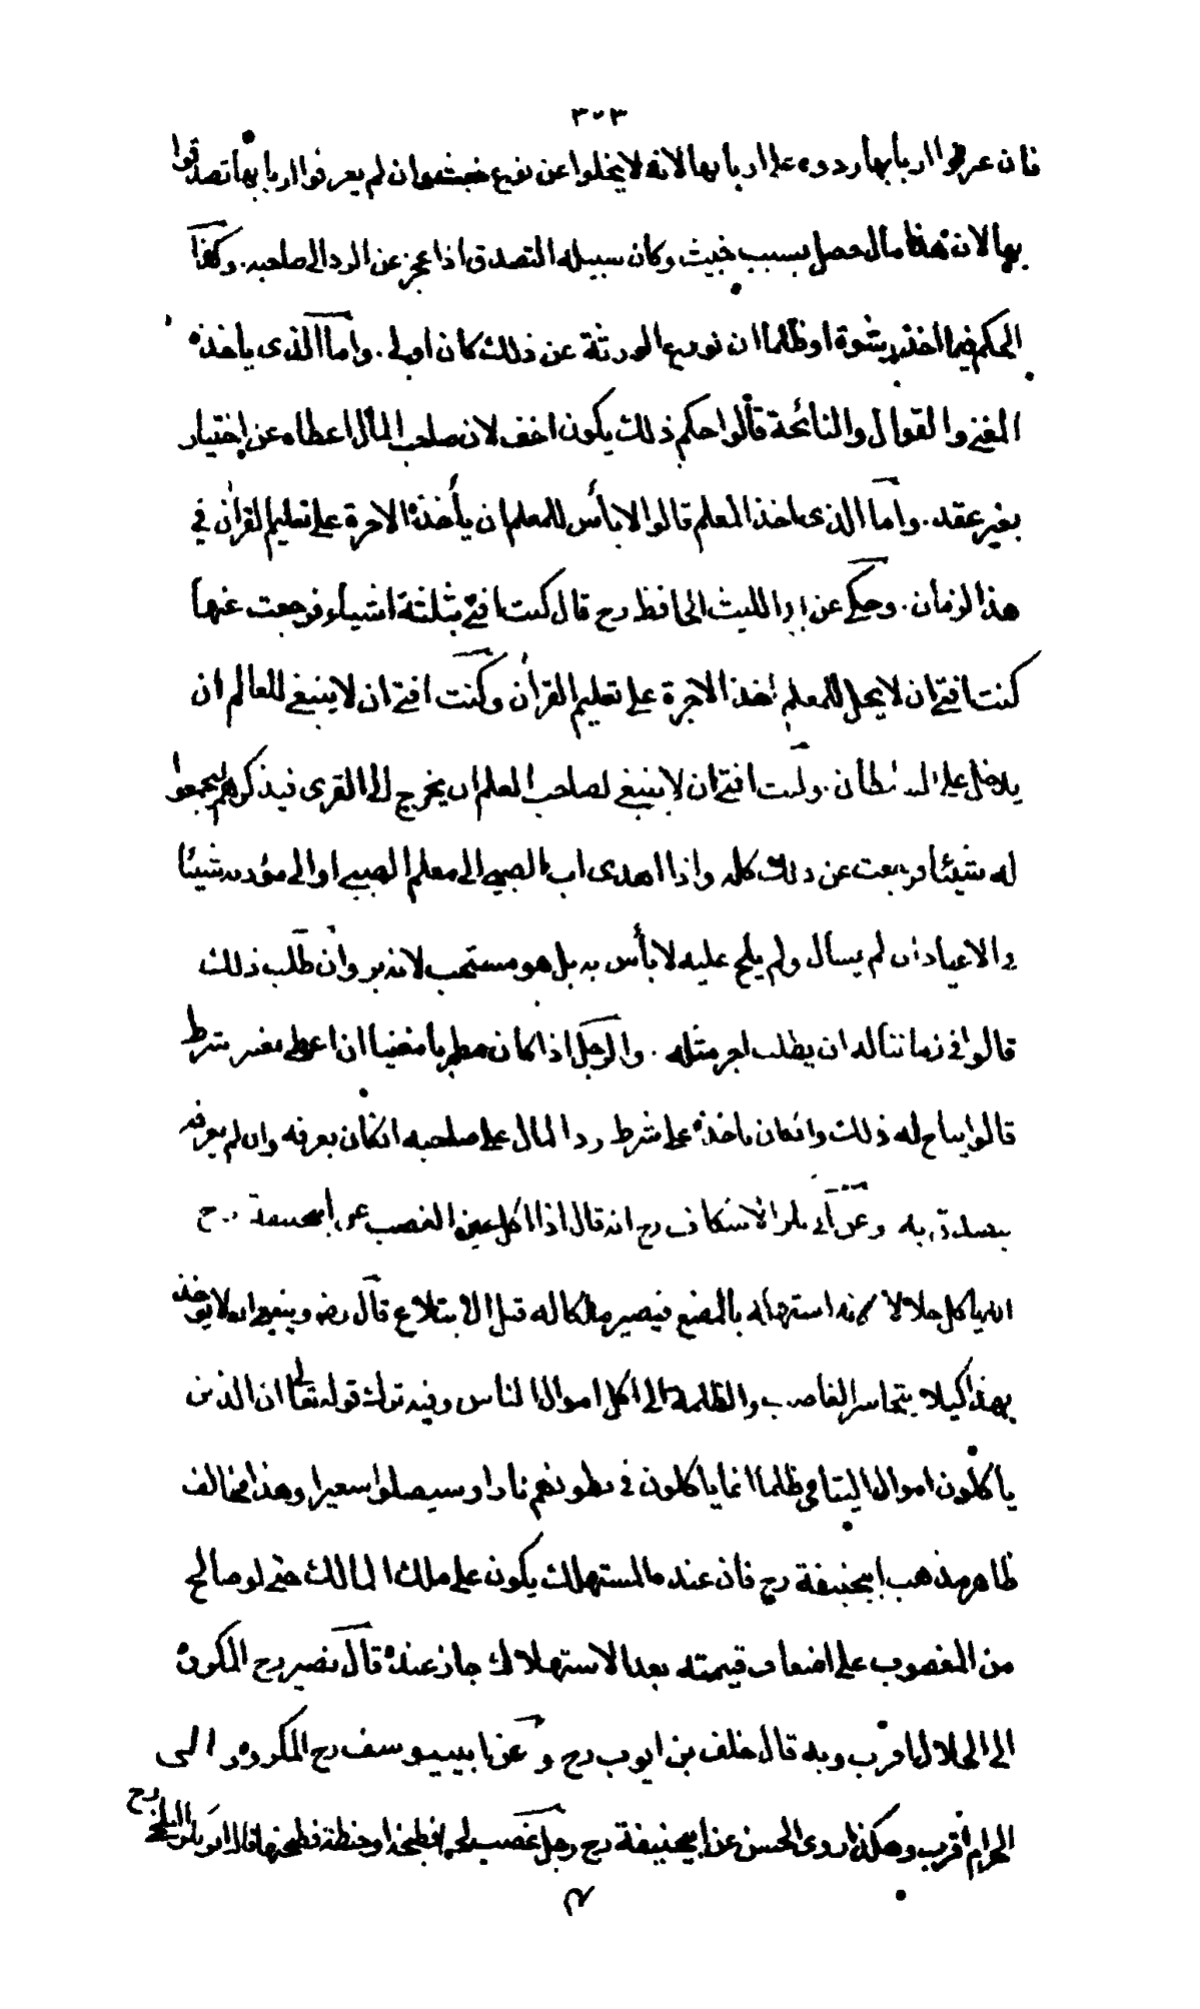 ٣٠٣
فان عرفوا اربابها ردوه على اربابها لانه لا يخلوا عن نوع خبث وان لم يعرفوا اربابها تصدقوا
بها لان هذا مال حصل بسبب خبيث وكان سبيله التصدق اذا عجز عن الرد الى صاحبه. وكذا
الحكم فيما اخذ برشوة او ظلما ان تورع الورثة عن ذلك كان اولى. واما الذى ياخذه
المغنى والقوال والنائحة قالوا حكم ذلك يكون اخف لان صاحب المال اعطاه عن اختيار
بغير عقد. واما الذى اخذ المعلم قالوا لا بأس للمعلم ان يأخذ الاجرة على تعليم القرآن فى
هذا الزمان. وحكى عن ابى الليث الحافظ رح قال كنت افتى بثلثة اشياء فرجعت عنها
كنت افتى ان لا يحل للمعلم اخذ الاجرة على تعليم القرآن وكنت افتى ان لا ينبغى للعالم ان
يدخل على السلطان. وكنت افتى ان لا ينبغى لصاحب العلم ان يخرج الى القرى فيذكرهم ليجمعوا
له شيئا فرجعت عن ذلك كله واذا اهدى اب الصبى الى معلم الصبى او الى مؤدبه شيئا
فى الاعياد ان لم يسأل ولم يلح عليه لا بأس به بل هو مستحب لانه بر وان طلب ذلك
قالوا فى زماننا له ان يطلب اجر مثله. والرجل اذا كان مطربا مغنيا ان اعطى بغير شرط
قالوا يباح له ذلك وان كان ياخذه على شرط رد المال على صاحبه انكان يعرفه وان لم يعرفه
يتصدق به وعن ابى بكر الاسكاف رح انه قال اذا اكل عين الغصب عن ابيحنيفة رح
انه ياكل حلالا لانه استهلكه بالمضغ فيصير ملكا له قبل الابتلاع قال رضه وينبغى ان لا يؤخذ
بهذا كيلا يتجاسر الغاصب والظلمة الى اكل اموال الناس وفيه ترك قوله تعالى ان الذين
ياكلون اموال اليتامى ظلما انما ياكلون فى بطونهم نارا وسيصلون سعيرا وهذا مخالف
ظاهر مذهب ابيحنيفة رح فان عنده المستهلك يكون على ملك المالك حتى لو صالح
من المغصوب على اضعاف قيمته بعد الاستهلاك جاز عنده قال نصير رح المكروه
الى الحلال اقرب وبه قال خلف بن ايوب رح وعن ابييوسف رح المكروه الى
الحرام اقرب وهكذا روى الحسن عن ابيحنيفة رح رجل غصب لحما فطبخه او حنطة فطحنها قال ابو بكر البلخى رح